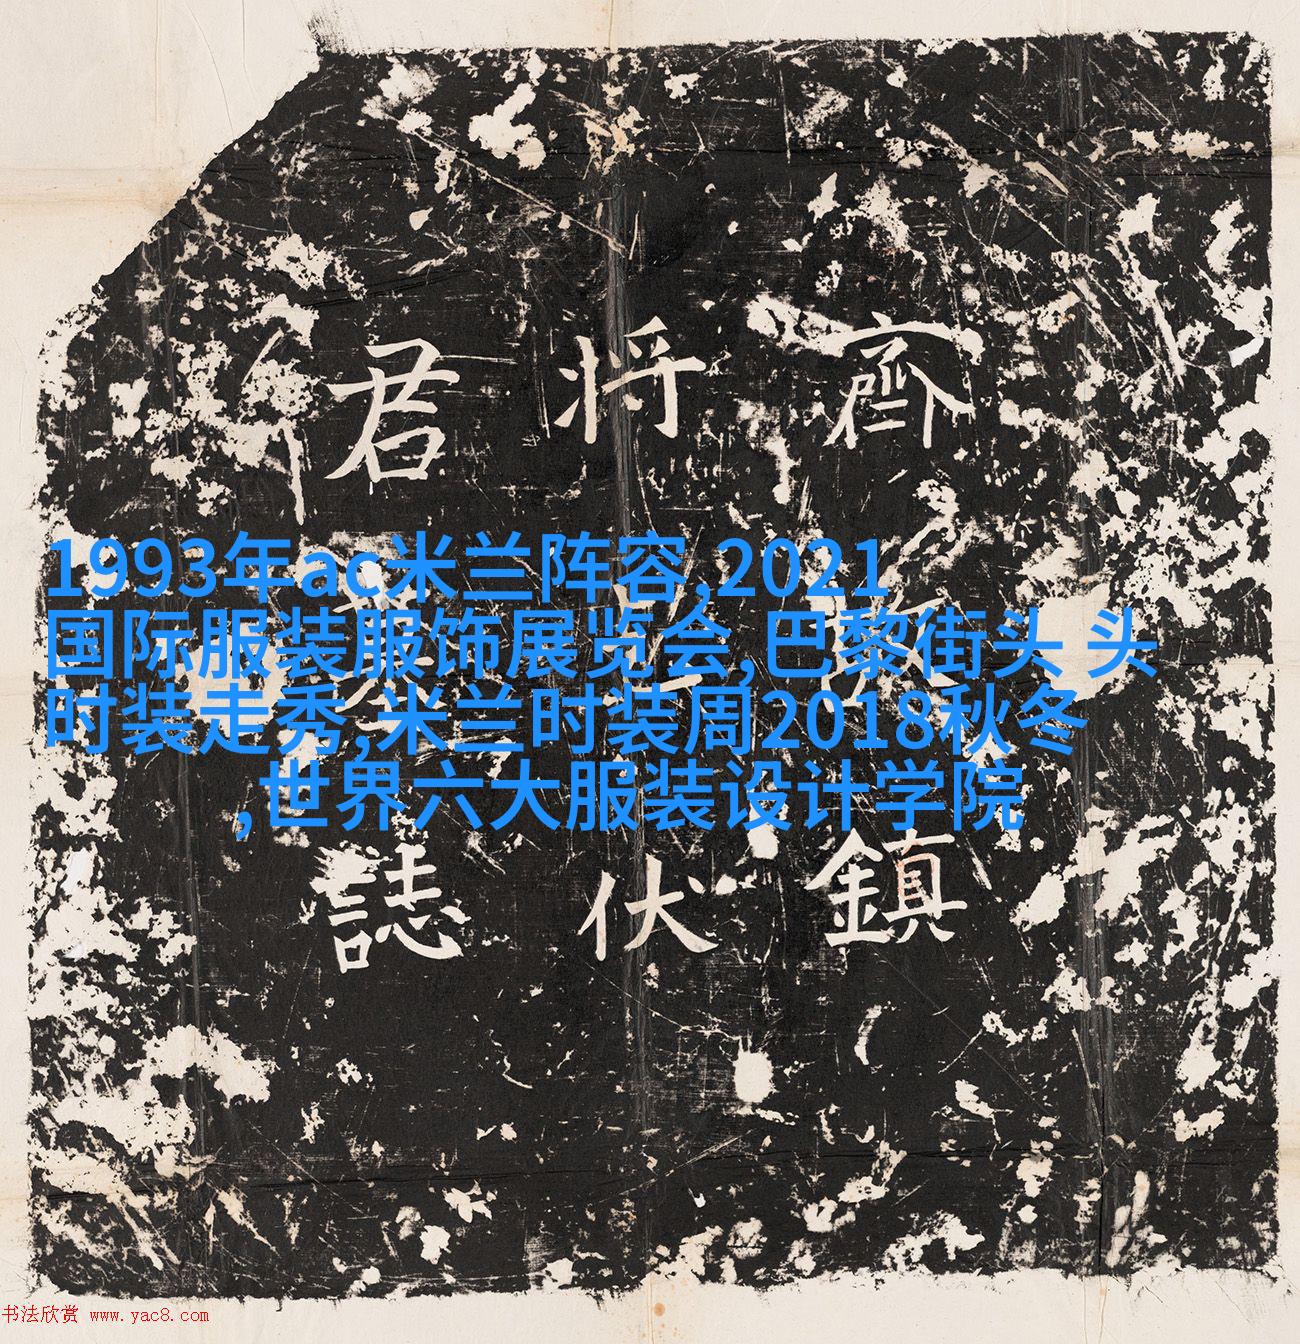 1993年ac米兰阵容,2021
国际服装服饰展览会,巴黎街头 头
时装走秀,米兰时装周2018秋冬
,世界六大服装设计学院
齊鎮
将伏
君誌
书法欣赏 www.yac8.com